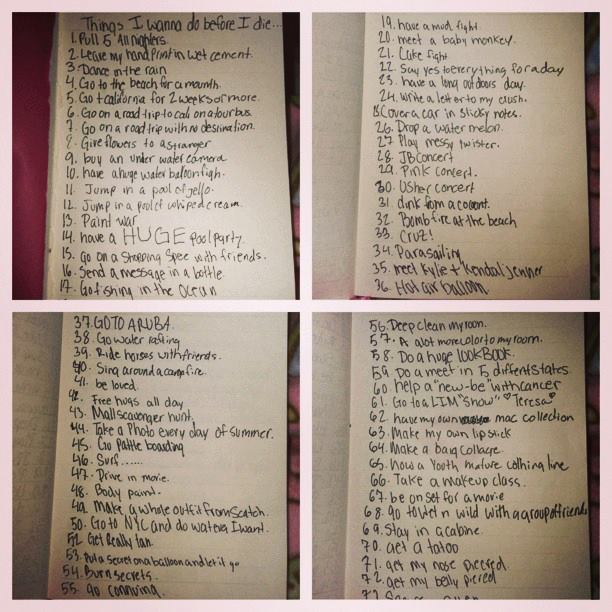 Things I wanna do before I die...
1. Pull 5 All nighters.
2. Leave my hand print in wet cement.
3. Dance in the rain
4. Go to the beach for a mounth.
5. Go t california for 2 weeks or more.
6. Go on a road trip to cali on a tour bus.
7. Go on a road trip with no desrination.
8. Give flowers to a stranger
9. buy an under water camera
10. have a huge water baloom figh.
11. Jump in a pool of jello.
12. Jump in a pool of whiped cream.
13. Paint war
14. have a HUGE pool party.
15. go on a shopping spee with friends.
16. Send a message in a bottle.
17. Go fishing in the ocean
19. have a mud fight.
20. meet a baby monkey.
21. Cake fight.
22. Say yes to everything for a day
23. have a long out doors day.
24. write a letter to my crush.
Cover a car in sticky notes.
26. Drop a water melon.
27 Play messy twister.
28. JB Concert
29. Pink concert.
30. Usher concert
31. dink from a coconut.
32. Bomb fire at the beach
33. Cruz!
34. Parasailing
35. meet Kylie + Kendal jenner
36. Hot air balloom
37. GO TO ARUBA.
38. Go water rafting
39. Ride horses with friends.
40. Sing around a camp fire.
41. be loved.
42. Free hugs all day.
43. Mall scavenger hunt.
44. Take a Photo every day of summer.
45. Go Pattle boarding
46. Surf......
47. Drive in movie.
48. Body paint.
49. Make a whole outfit from Scatch.
50. Go to NYC and do watever I want.
52. Get Really tan.
53. Put a secret on a balloon and let it go
54. Burn secrets.
55. go
56. Deep clean my room.
57. A alot more color to my room.
58. Do a huge LOOKBOOK.
59. Do a meet in 5 differnt States.
60 help a "new-be" with cancer
61. Go to a LIM "Show" ♡ Teresa ♡
62 have my own mac collection
63. Make my own lipstick
64. Make a bag collage.
65. have a Youth mature clothing line
66. Take a makeup class.
67. be on set for a movie
68. go to wet n wild with a group of friends
69. Stay in a cabine.
70. get a tatoo
71. get my nose piecred.
72. get my belly piered